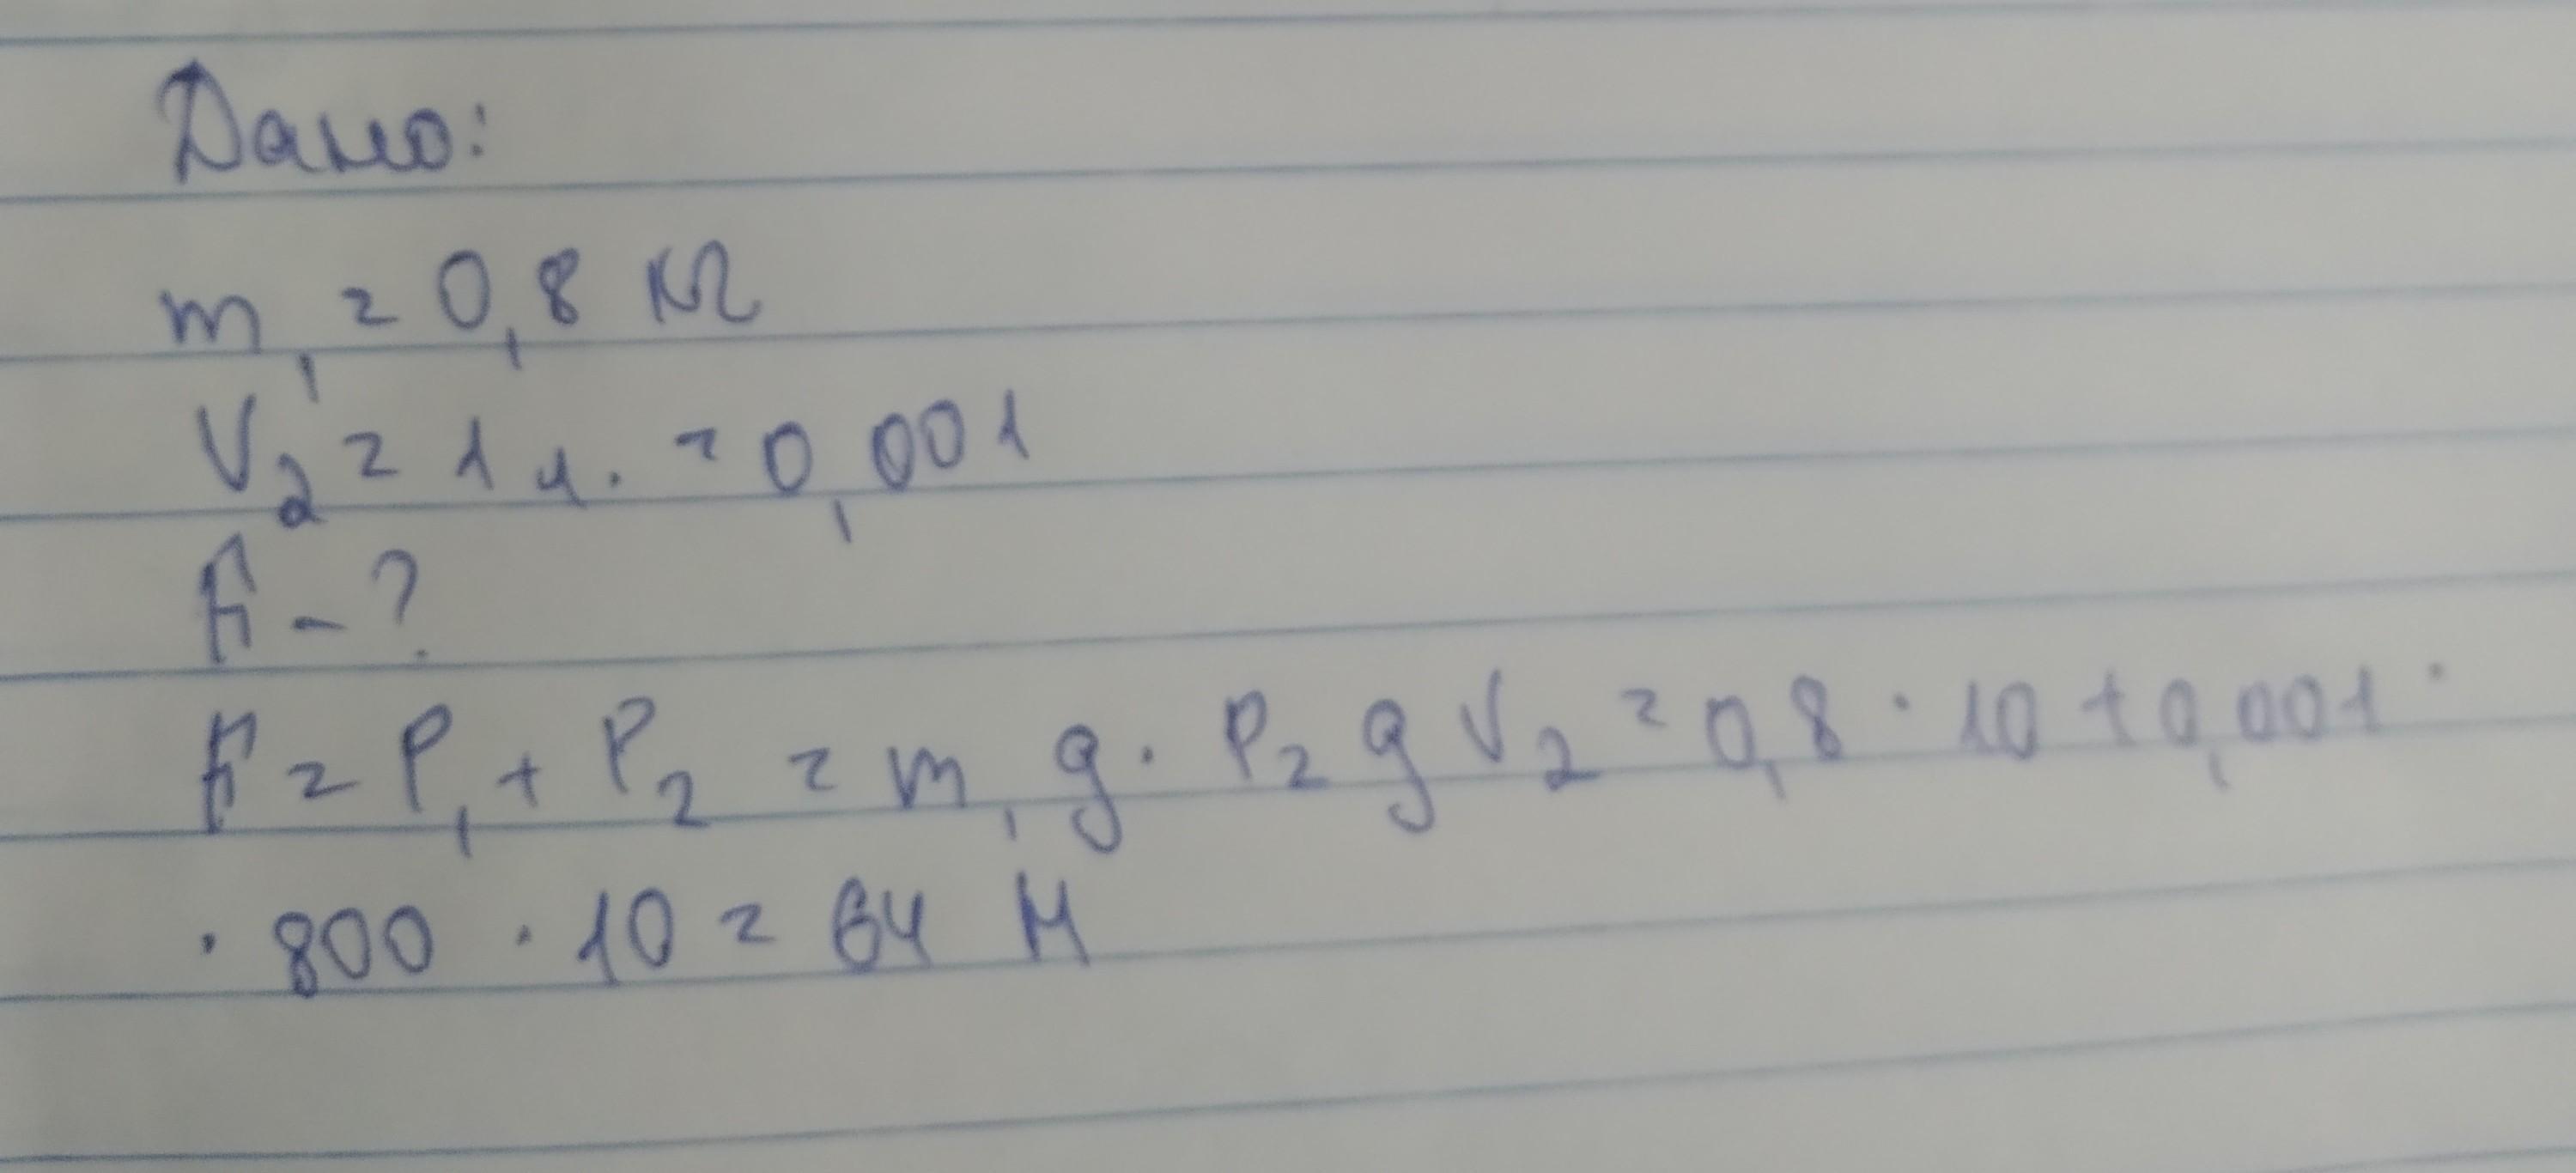 Дано:
m₁ = 0,8 кг
V₂ = 1 л. = 0,001
F - ?
F = P₁ + P₂ = m₁g · P₂ g V₂ = 0,8 · 10 + 0,001 ·
· 800 · 10 = 64 Н